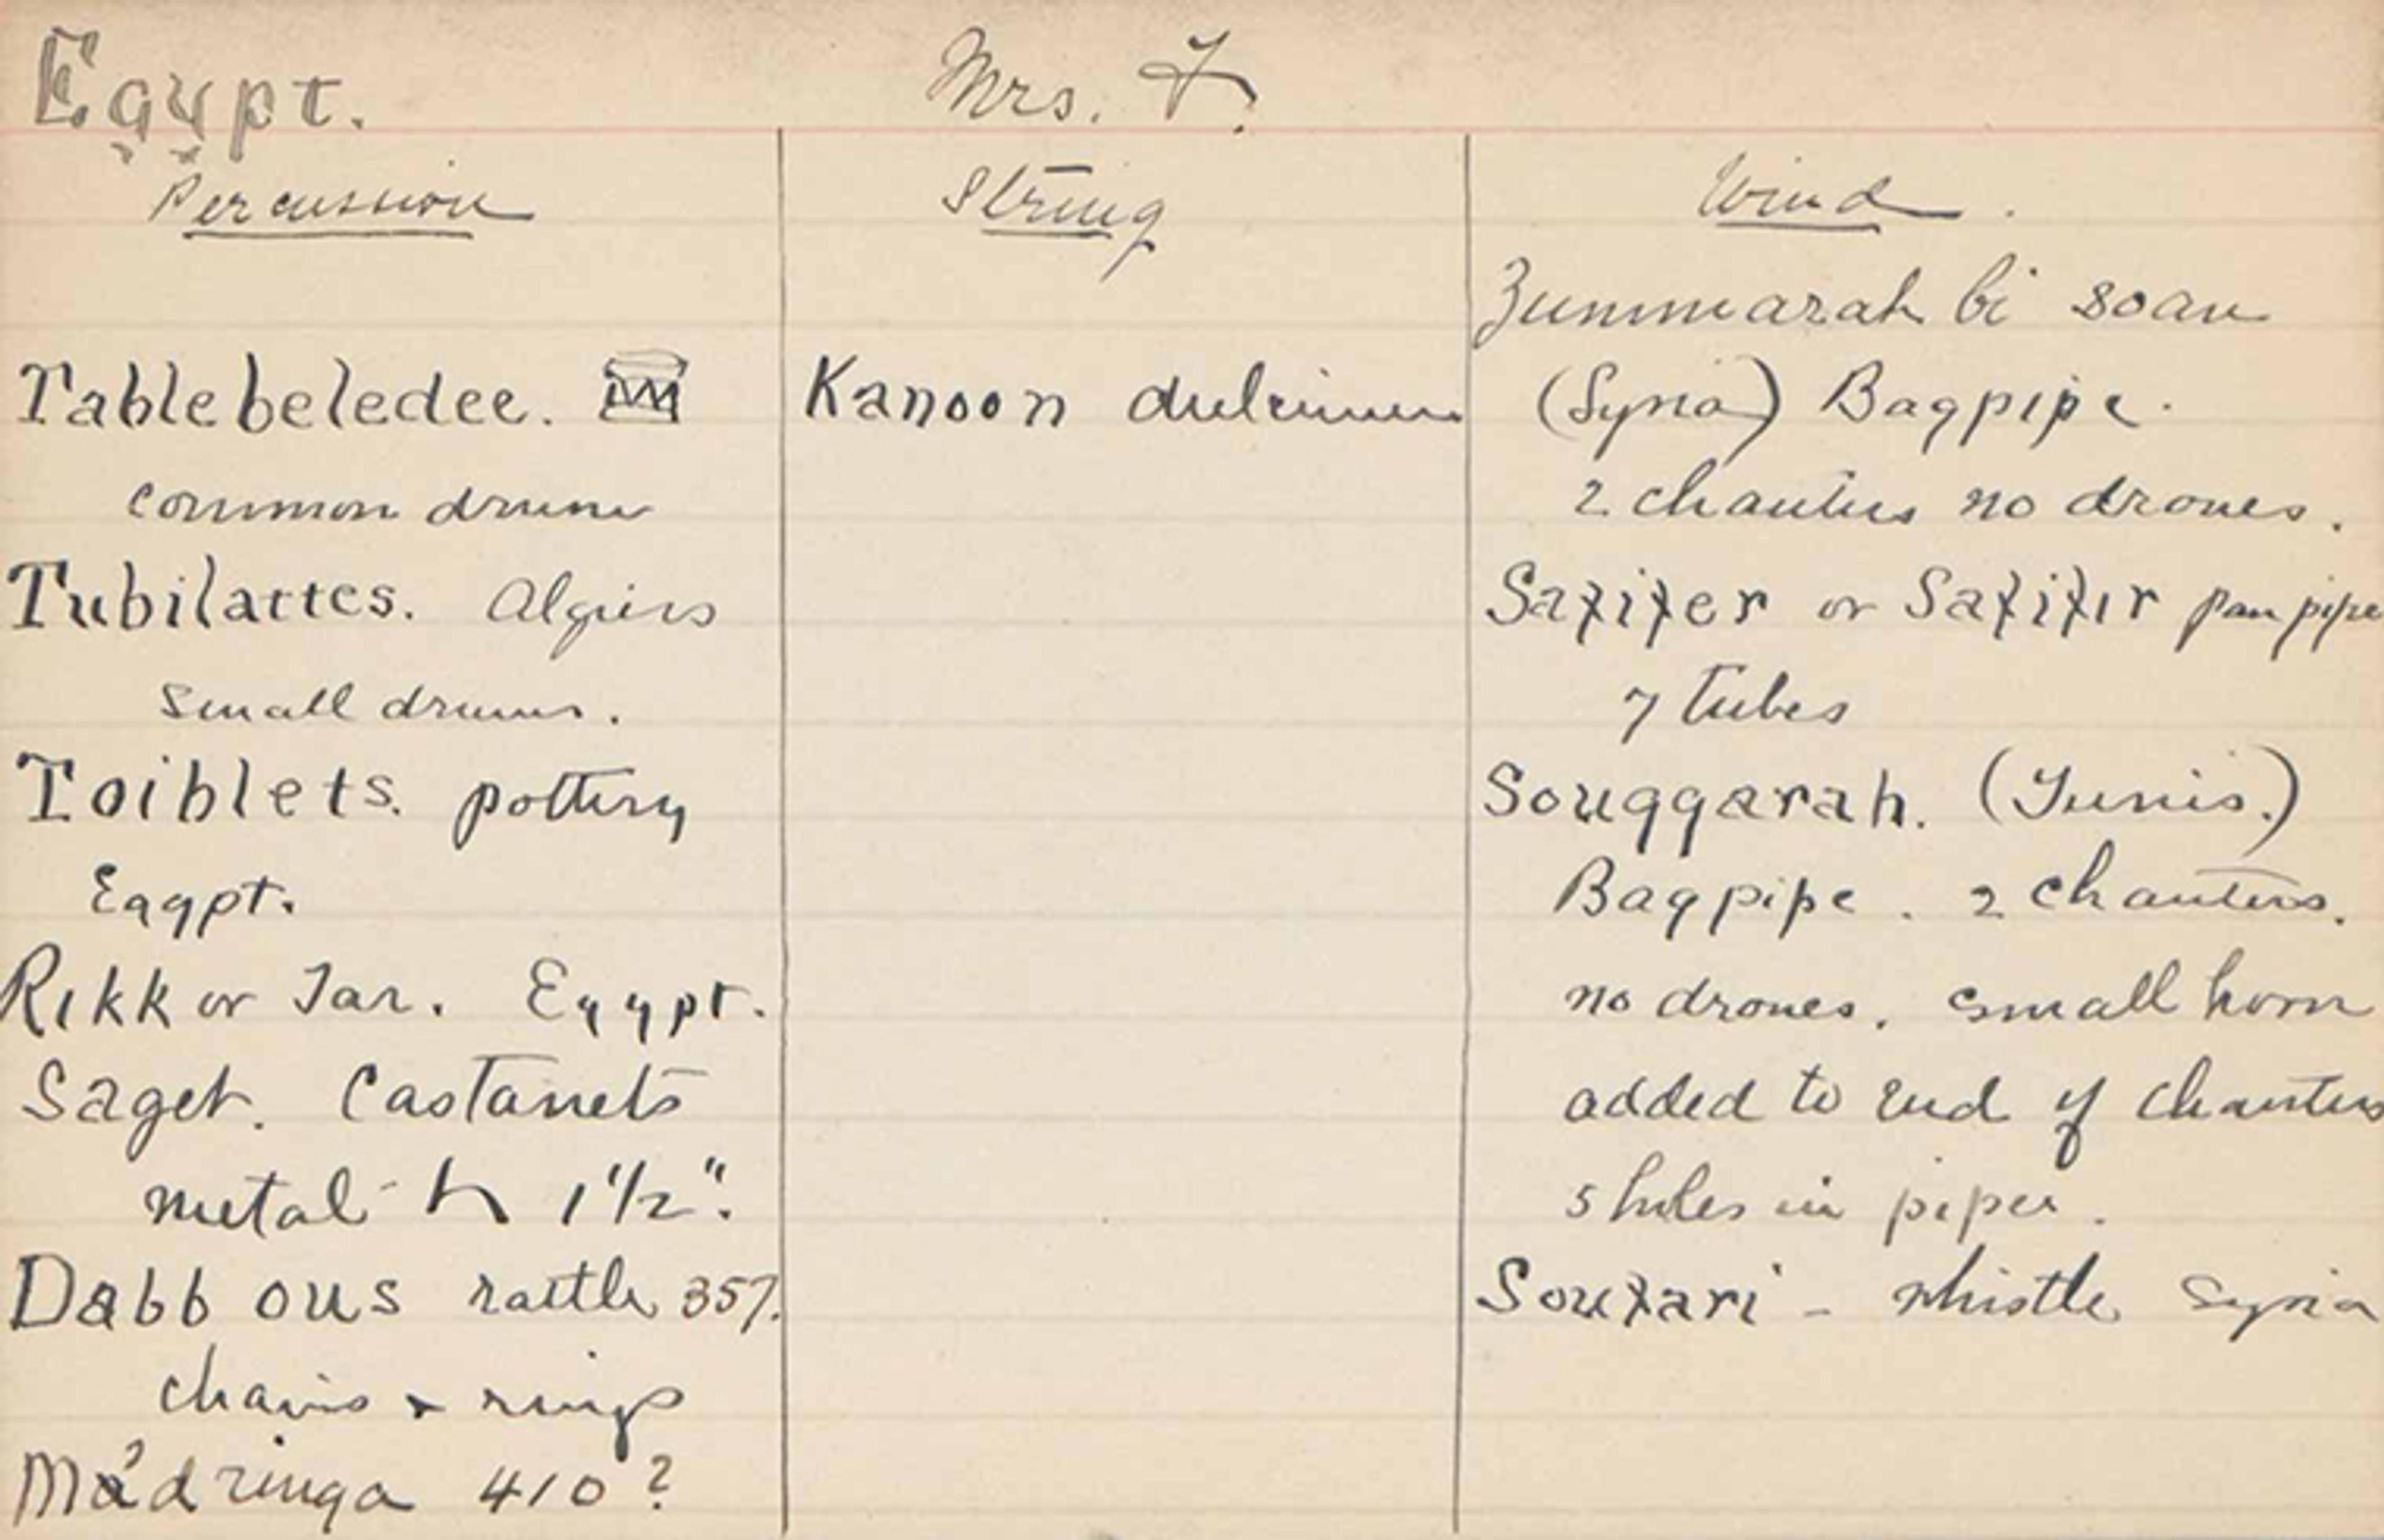 Egypt.
Mrs. F.
Percussion
Tablebeledee.
Common drum
Tubilattes. Algiers
Small drums.
Toiblets. pottery
Egypt.
Rikk or Tar. Egypt.
Saget. Castanets
metal 1 1/2".
Dabbous rattle 357.
chains + rings
Madringa 410?
String
Kanoon dulcimer
Wind.
Zummarah bi soan
(Syria) Bagpipe.
2 chanters no drones.
Safifer or Safifir pan pipe
7 tubes
Souggarah. (Tunis.)
Bagpipe. 2 chanters.
no drones. small horn
added to end of chanters
5 holes in pipes.
Soufari - whistle Syria